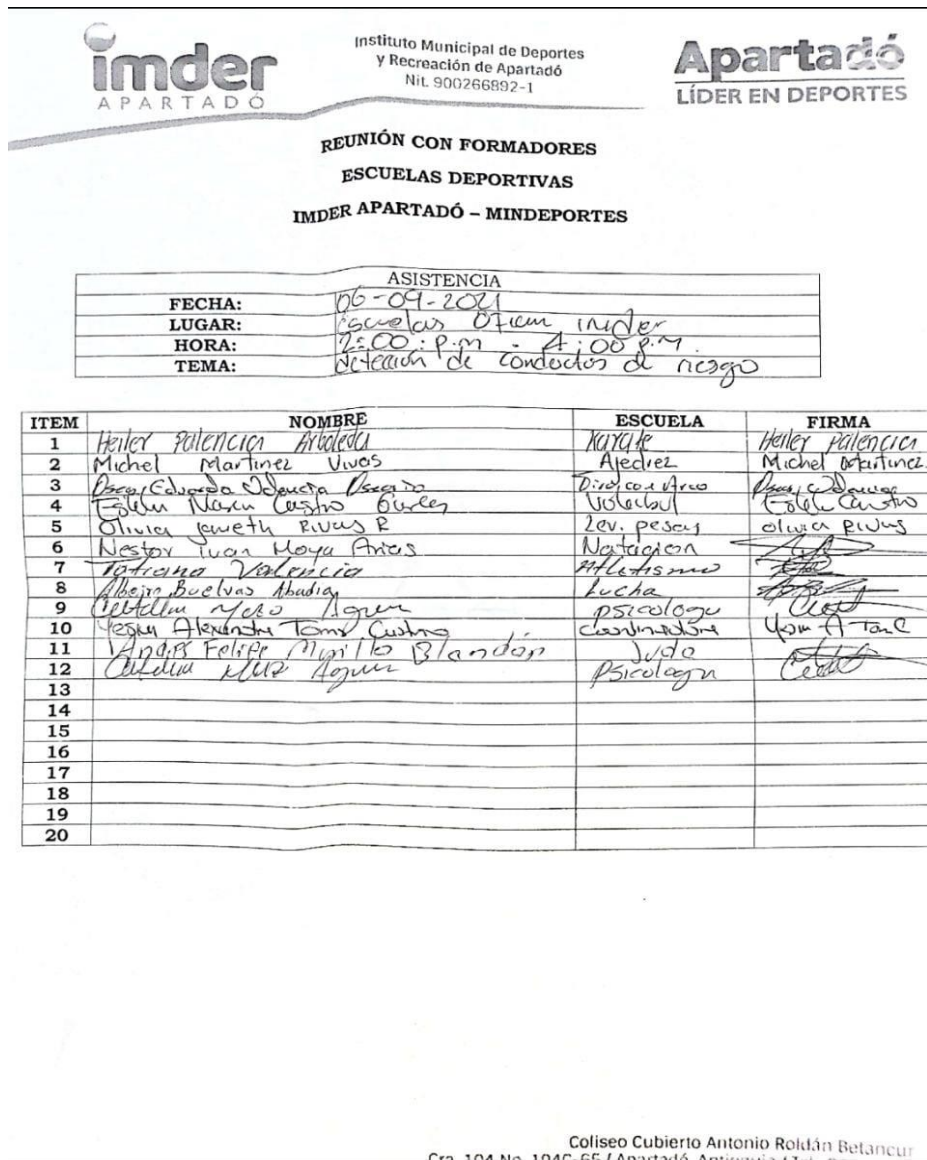 imder
APARTADÓ
Instituto Municipal de Deportes
y Recreación de Apartadó
Nit. 900266892-1
Apartadó
LÍDER EN DEPORTES
REUNIÓN CON FORMADORES
ESCUELAS DEPORTIVAS
IMDER APARTADÓ – MINDEPORTES
ASISTENCIA
FECHA: 06-09-2021
LUGAR: Escuelas imder
HORA: 2:00 p.m - 4:00 p.m
TEMA: detección de conductas de riesgo
ITEM NOMBRE ESCUELA FIRMA
1 Heiler Palencia Arboleda Karate Heiler Palencia
2 Michel Martinez Vivas Ajedrez Michel Martinez
3 Oscar Eduardo Valencia Tiro con Arco Oscar Valencia
4 Castro Voleibol Castro
5 Olivia Janeth Rivas R Lev. pesas olivia Rivas
6 Nestor Ivan Moya Arias Natacion
7 Tatiana Valencia Atletismo
8 Albeiro Buelvas Abadia Lucha
9 psicologa
10 Tam
11 Andres Felipe Murillo Blandón Judo
12 Psicologa
13
14
15
16
17
18
19
20
Coliseo Cubierto Antonio Roldán Betancur